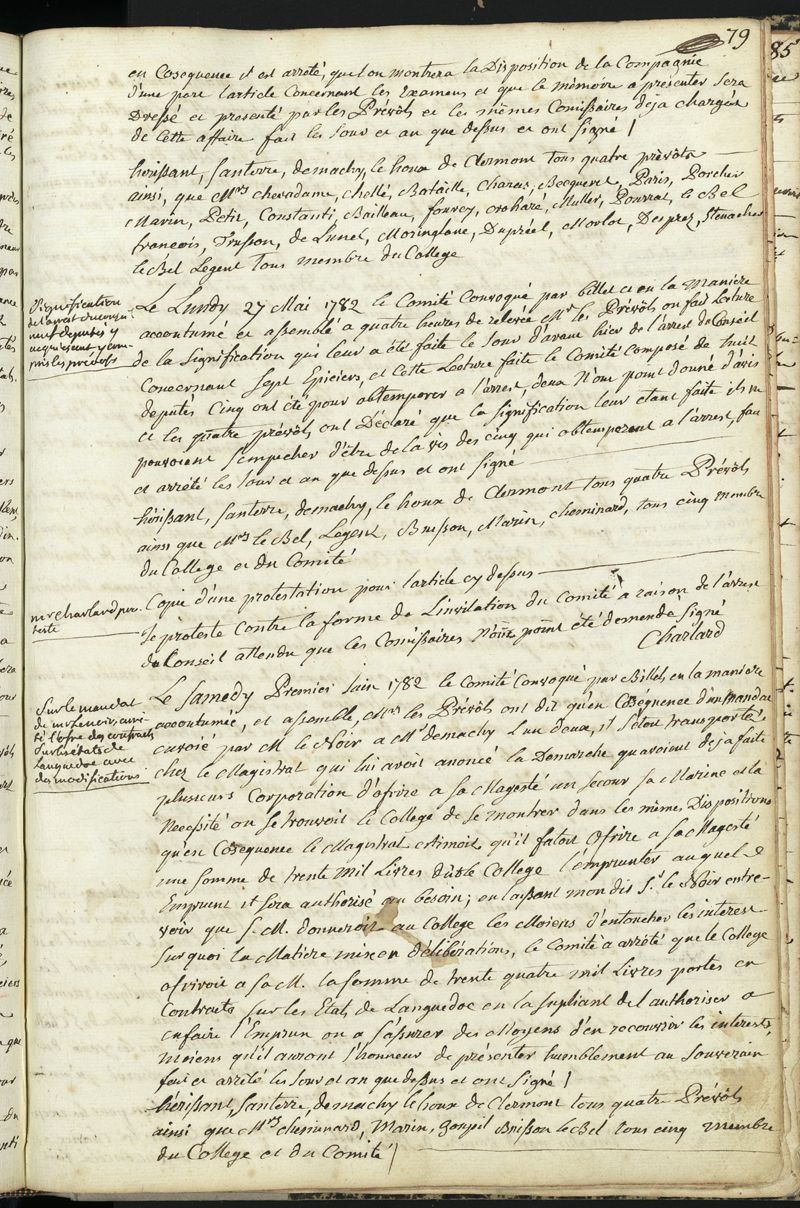 79
en Cosequence il est arrêté, que l'on montrera la Disposition de la Compagnie
d'une part l'article Concernant les Examens et que le mémoire a presenter sera
Dressé et presenté par les Prévôts et les mêmes Comissaires deja chargés
de cette affaire fait les Jour et an que dessus et ont signé /
hérissant, santerre, demachy, le houx de Clermont tous quatre prévôts
ainsi, que Mrs chevadame, chellé, Bataille, Charas, Becqueret, Paris, Porcher
Marin, Petit, Constanti, Bailleau, fourcy, Muller, Pourrat, le Bel
francois, Trusson, de Lunel, Moringlane, Dupréel, Morlot, Desprez, Stenacher
le Bel Legent Tous membre du College
Signification
de l'arrest du conseil
huit deputés y
acquiesent y com-
pris les prévots
Le Lundy 27 Mai 1782 le Comité Convoqué par billet et en la Maniere
accoutumé et assemblé a quatre heures de relevée Mrs les Prévôts on fait Lecture
de la Signification qui leur a été faite le Jour d'avant hier de l'arrest du Conseil
Concernant Sept Epiciers, et Cette Lecture faite le Comité Composé de huit
deputés Cinq ont été pour obtemperer a l'arrest, deux N'ont point donné d'avis
et les quatre prévôts ont Déclaré que la signification leur etant faite ils ne
pouvoient s'empecher d'être de l'avis des cinq qui obtemperent a l'arrest, fait
et arrêté les Jour et an que dessus et ont signé
hérissant, santerre, demachy, le houx de Clermont tous quatre Prévôts
ainsi que Mrs le Bel, Legent, Buisson, Marin, cheminard, tous cinq membre
du College et du Comité
mr Charlard pro-
teste
Copie d'une protestation pour l'article cy dessus
Je proteste Contre la forme de L'invitation du Comité a raison de l'arrest
du Conseil attendu que les Comissaires N'ont point été demandé signé
Charlard
Sur le mandat
de mr lenoir, arrê-
té l'ofre des contrats
sur les états de
languedoc avec
des modifications
Le Samedy Premier Juin 1782 le Comité Convoqué par Billet, en la maniere
accoutumée, et assemblé, Mrs les Prévôts ont dit qu'en Coséquence d'un Mandat
envoié par M. le Noir a Mr Demachy l'un deux, il s'etoit transporté
chez le Magistrat qui lui avoit anoncé la Demarche qu'avoient deja faite
plusieurs Corporation d'ofrire a sa Magesté un secour sa Marine et la
Necessité ou se trouvoit le College de se montrer dans les mêmes Dispositions
qu'en Cosequence le Magistrat estimoit qu'il faloit Ofrire a sa Magesté
une somme de trente Mil Livres le College l'emprunter auquel
Emprunt il sera authorisé au besoin; en laissant mon dis Sr. le Noir entre-
voir que S. M. donneroit au College les Moiens d'en toucher les interest
Surquoi la Matiere mise en délibérations, le Comité a arrêté que le College
ofriroit a sa M. la somme de trente quatre mil Livres portes en
Contracts sur les Etats de Languedoc en la supliant de l'authoriser a
en faire l'Emprun on a s'assurer des Moyens d'en recouvrer les interests
moiens qu'il auront l'honneur de présenter humblement au souverain
fait et arrêté les Jour et an que dessus et ont signé /
hérissant, Santerre, demachy le houx de Clermont tous quatre Prévôts
ainsi que Mrs cheminard, Marin, Goupil Buisson le Bel tous cinq membre
du College et du Comité /